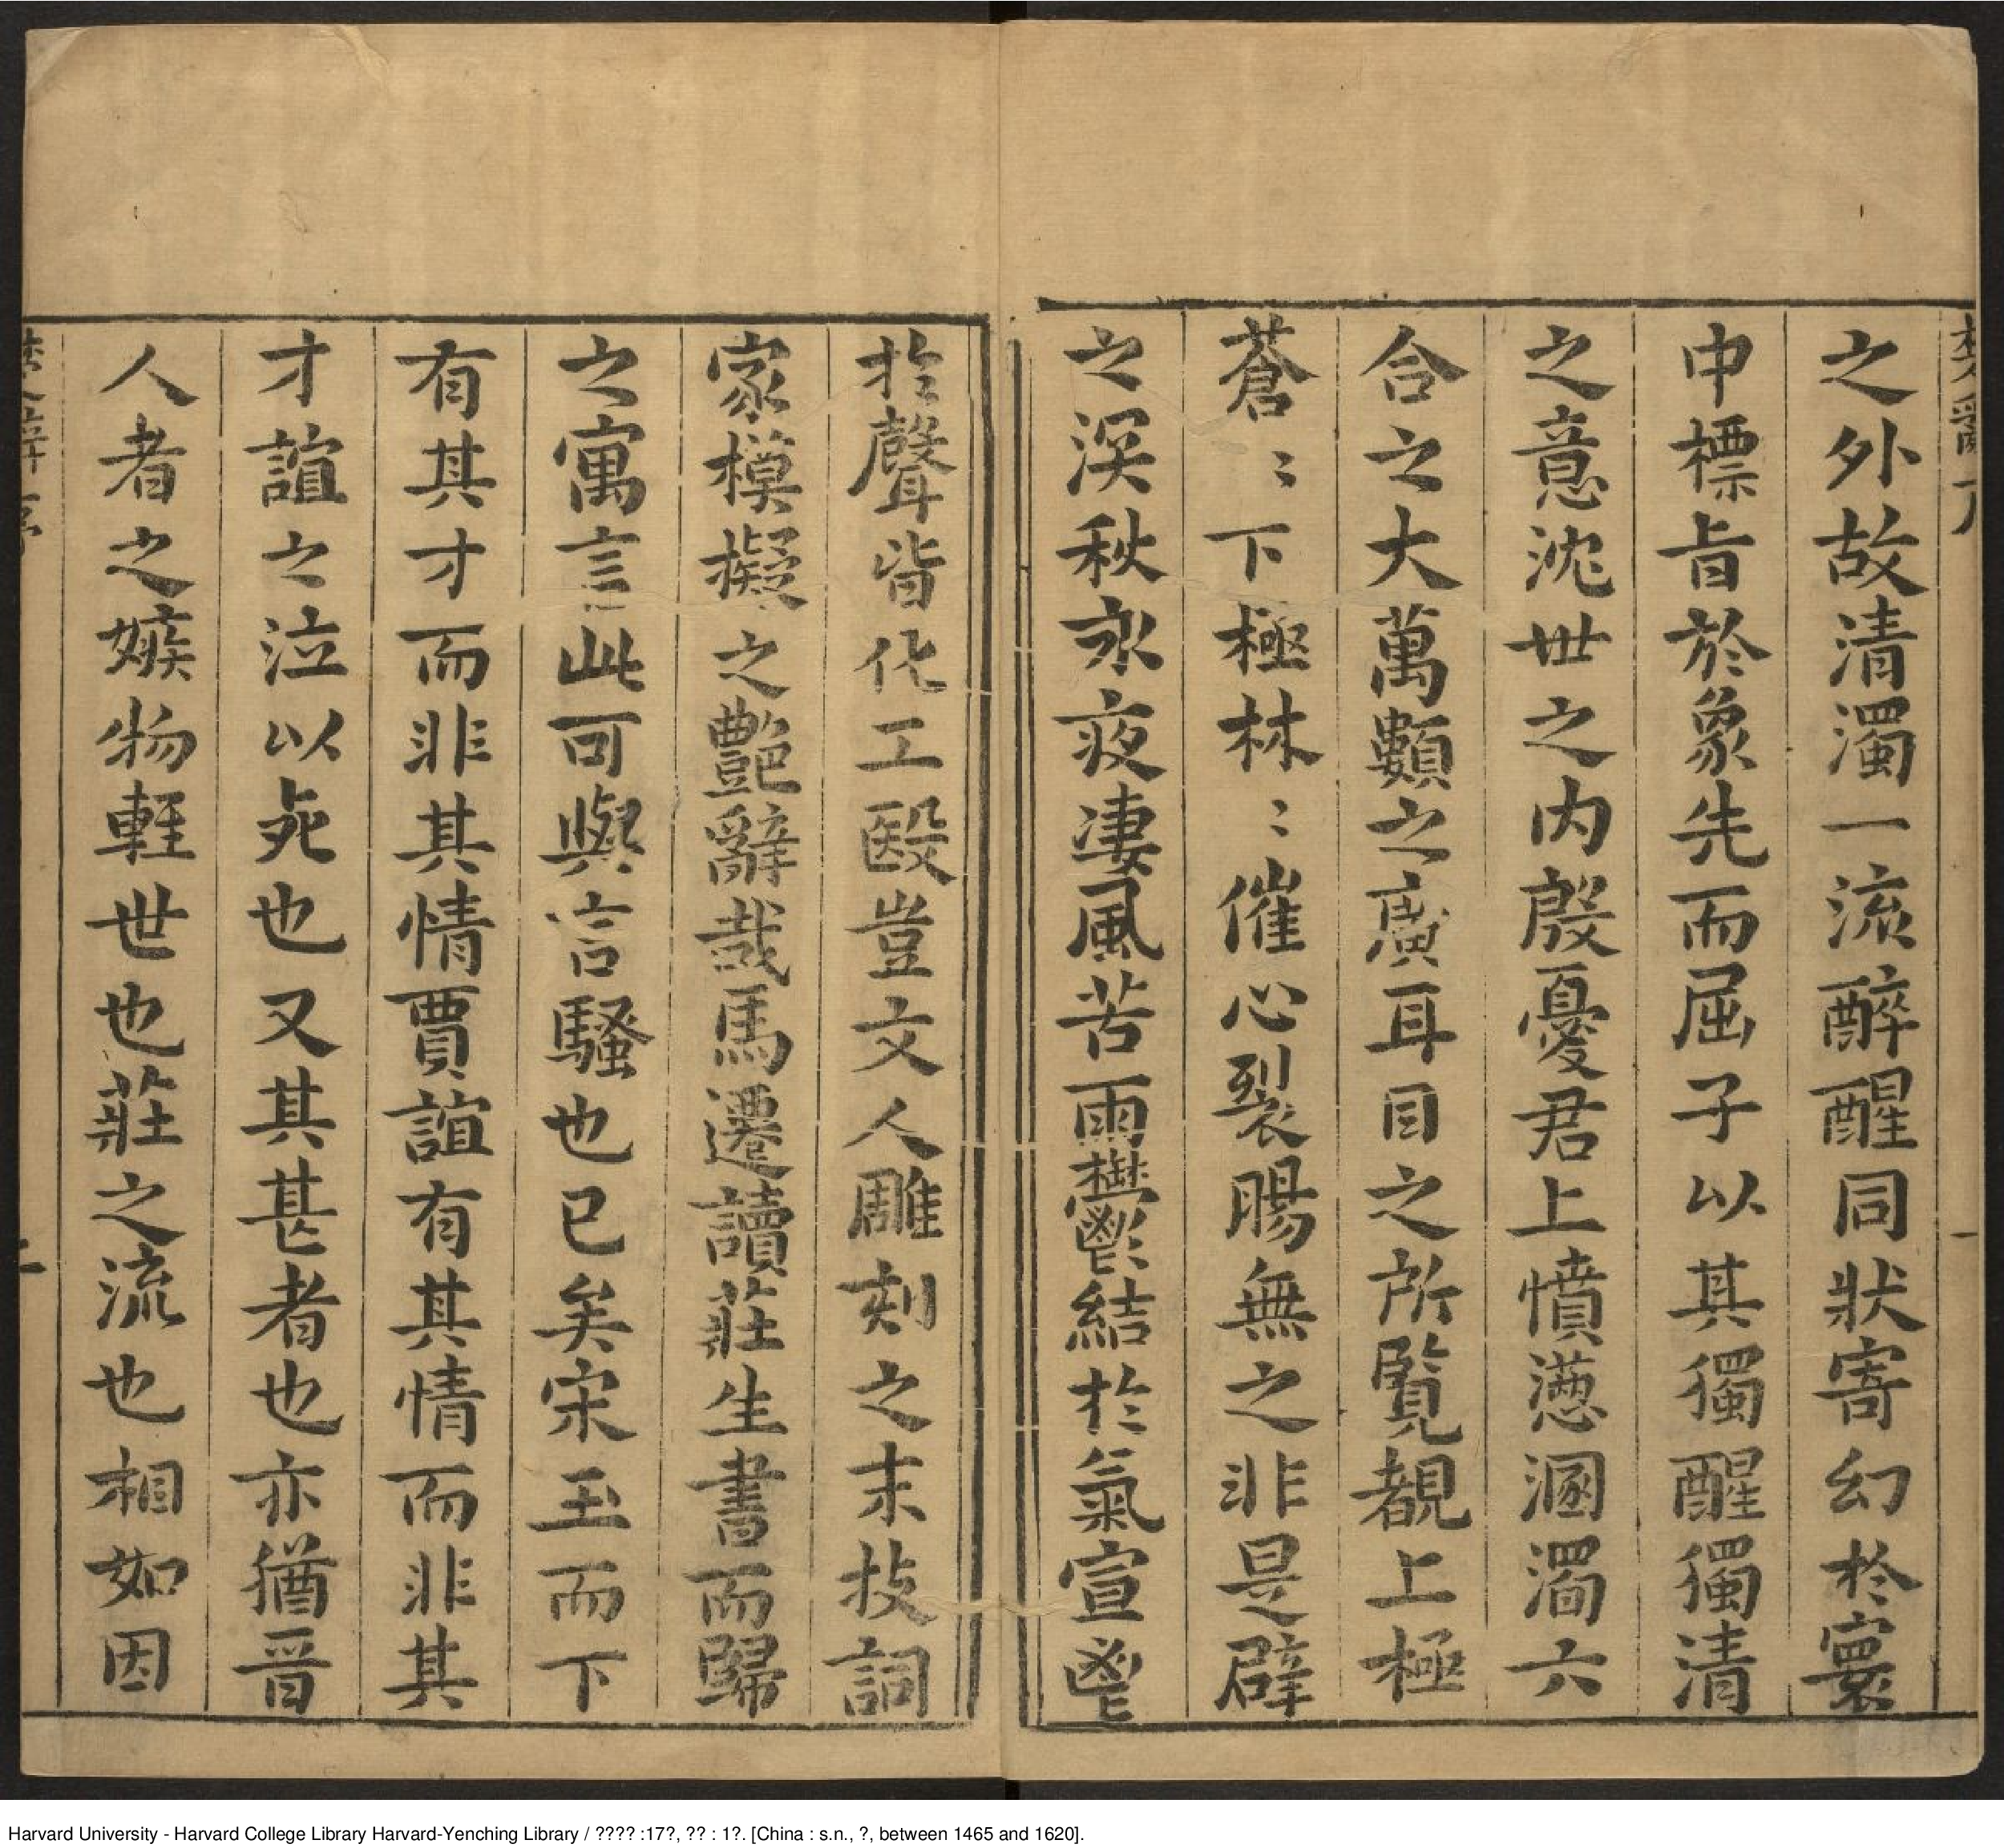 之外故清濁一流醉醒同狀寄幻於寰
中標旨於象先而屈子以其獨醒獨清
之意沈世之內殷憂君上憤懣溷濁六
合之大萬顆之廣耳目之所覽覩上極
蒼〻下極林〻催心裂腸無之非是辟
之深秋永夜淒風苦雨鬱結於氣宣鬯
於聲皆化工殹豈文人雕刻之末技詞
家模擬之艷辭哉馬遷讀莊生書而歸
之寓言此可與言騷也已矣宋玉而下
有其才而非其情賈誼有其情而非其
才誼之泣以死也又其甚者也亦猶晋
人者之嫉物輕世也莊之流也相如因
楚辭序
二
Harvard University - Harvard College Library Harvard-Yenching Library / ???? :17?, ?? : 1?. [China : s.n., ?, between 1465 and 1620].